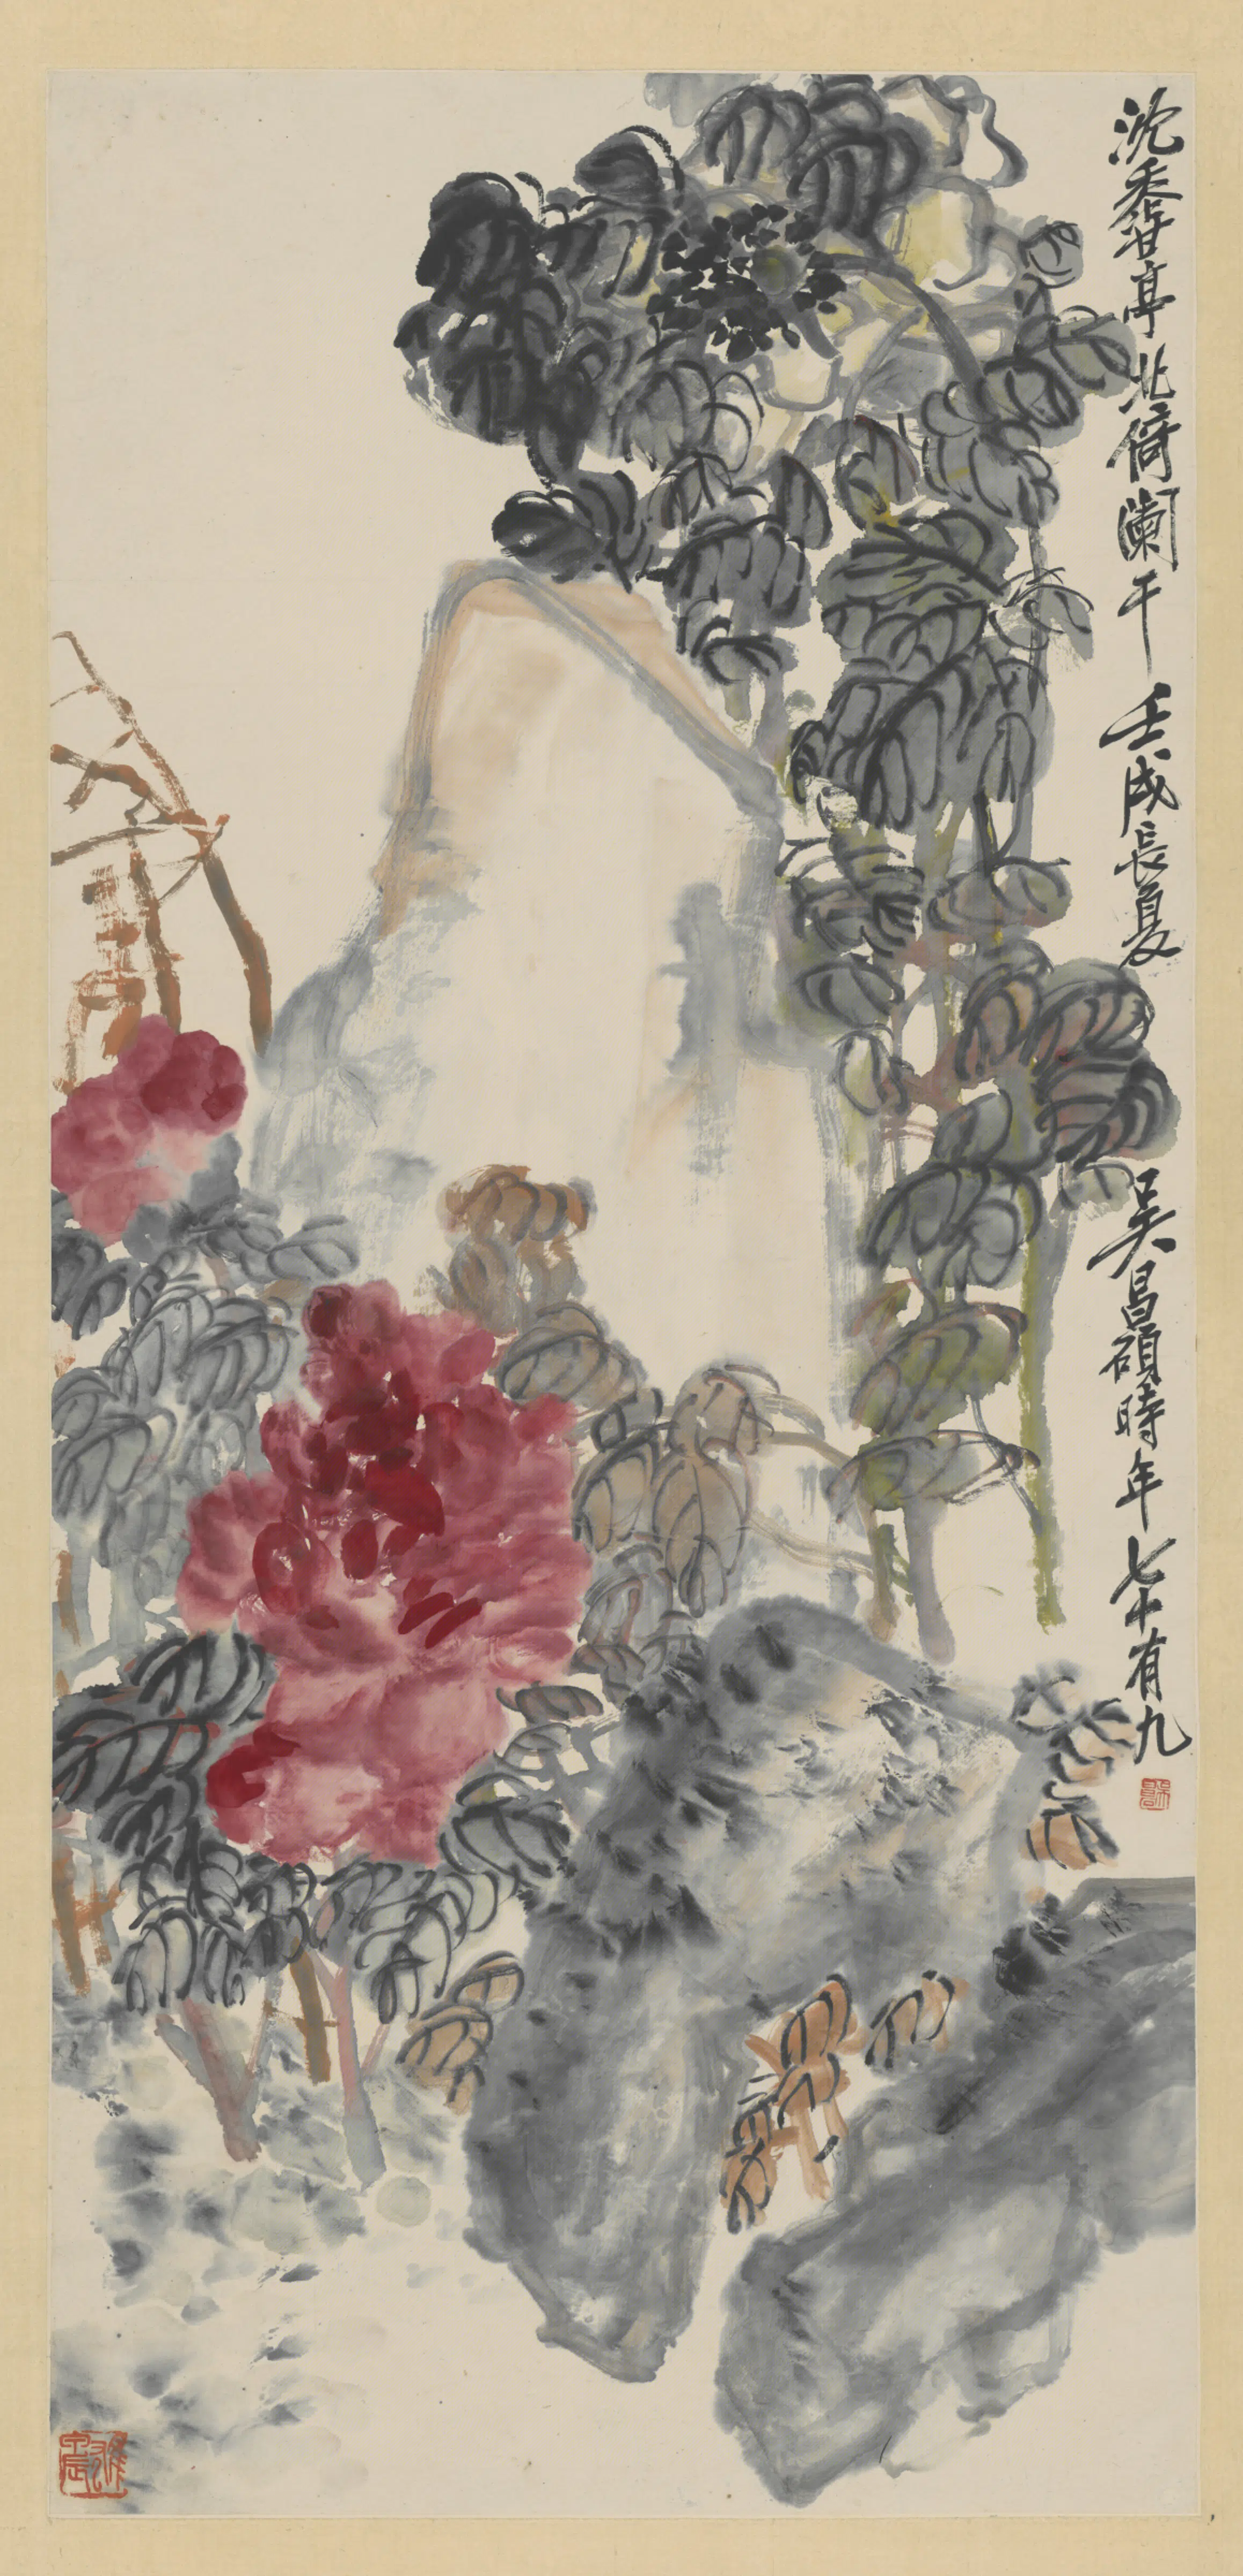 沈香亭北倚闌干 壬戌長夏 吳昌碩時年七十有九
雄甲辰